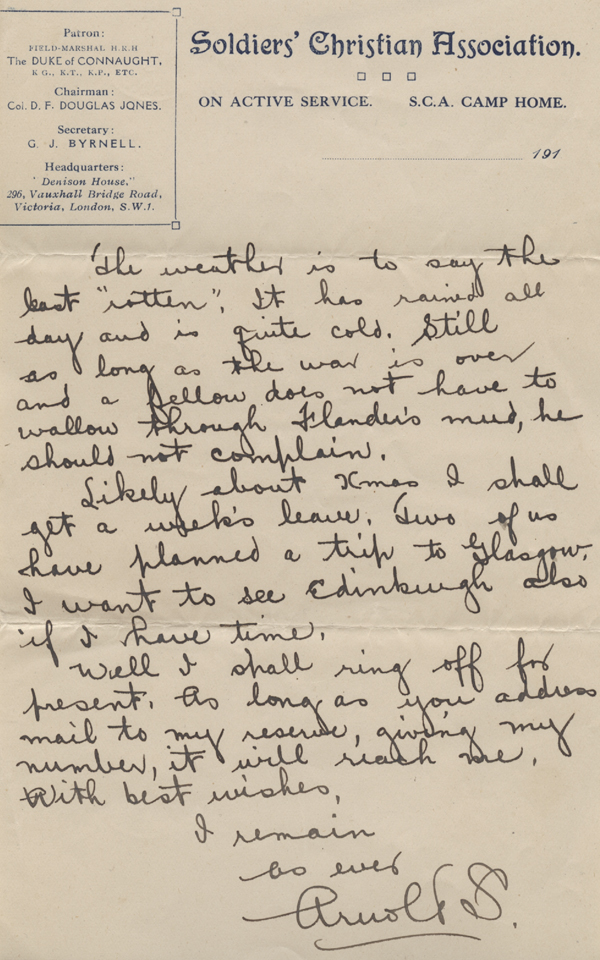 Patron:
FIELD-MARSHAL H.R.H
The DUKE of CONNAUGHT,
K G., K.T., K.P., ETC.
Chairman:
Col. D. F. DOUGLAS JONES.
Secretary:
G. J. BYRNELL.
Headquarters:
' Denison House,"
296, Vauxhall Bridge Road,
Victoria, London, S.W.1.
Soldiers' Christian Association.
ON ACTIVE SERVICE. S.C.A. CAMP HOME.
191
The weather is to say the
least "rotten". It has rained all
day and is quite cold. Still
as long as the war is over
and a fellow does not have to
wallow through Flander's mud, he
should not complain.
Likely about Xmas I shall
get a week's leave. Two of us
have planned a trip to Glasgow.
I want to see Edinburgh also
if I have time.
Well I shall ring off for
present. As long as you address
mail to my reserve, giving my
number, it will reach me.
With best wishes,
I remain
as ever
Arnold S.